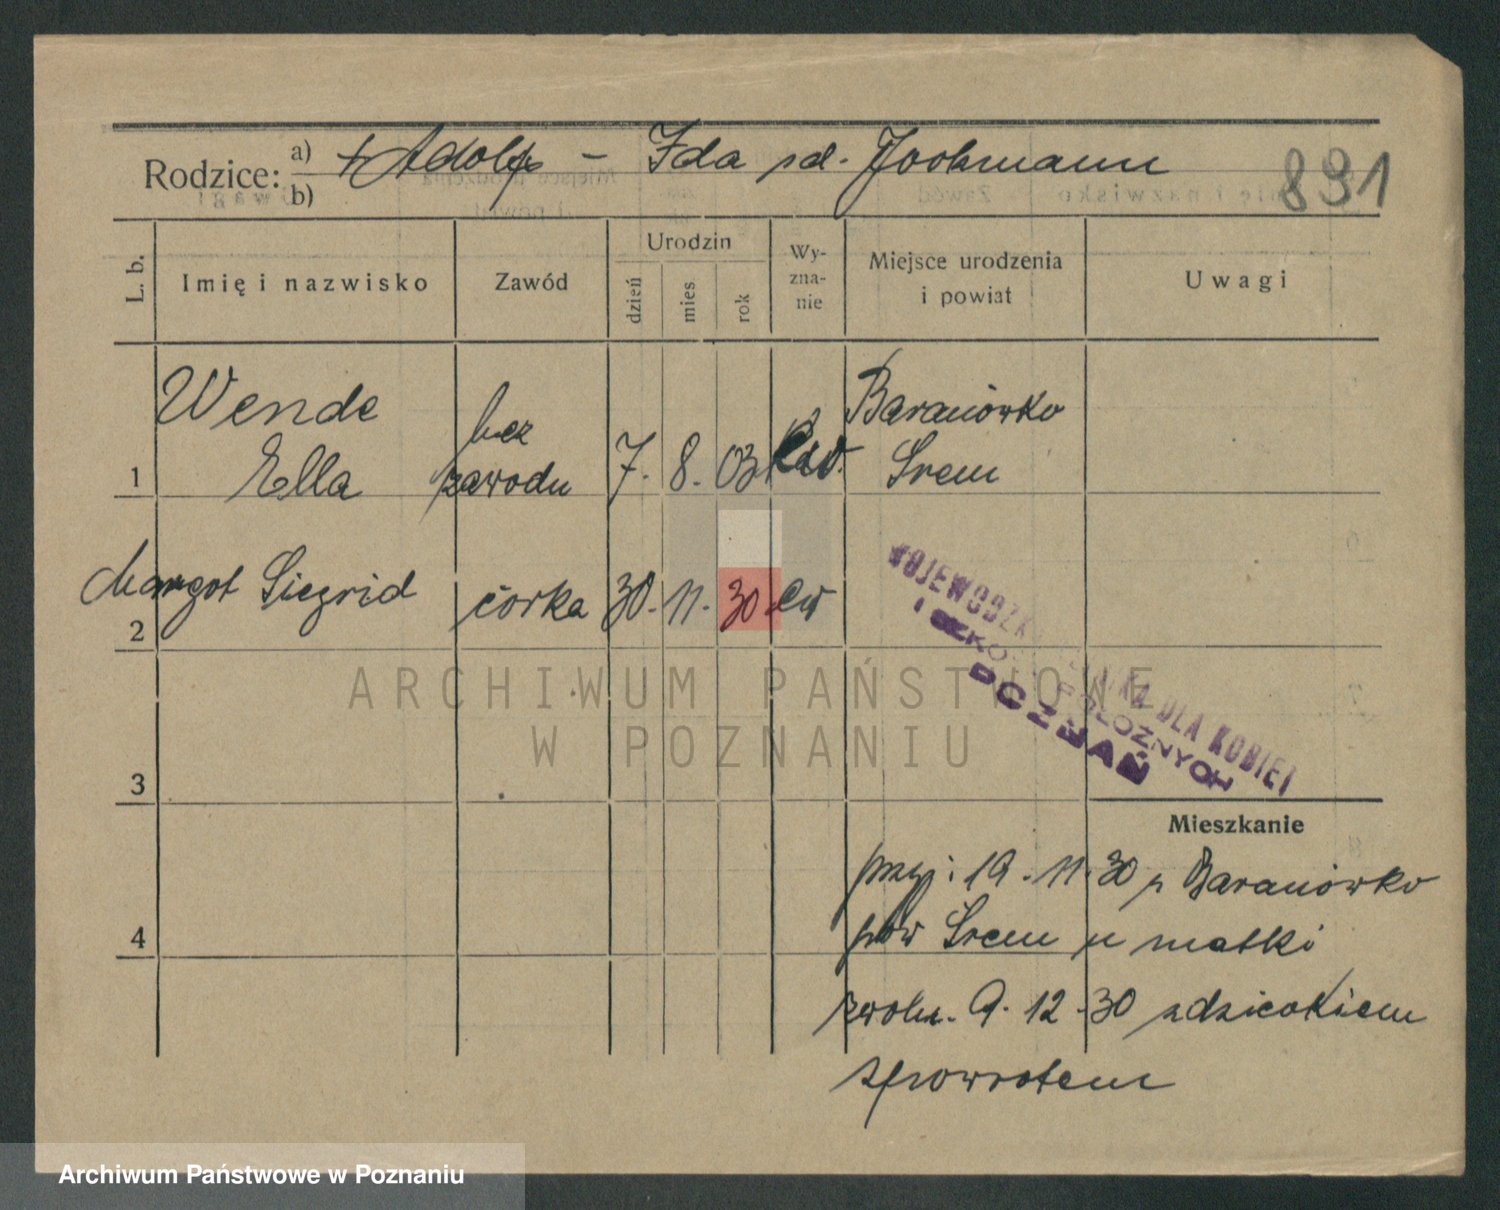 Rodzice: a) + Adolf - Ida zd. Jochmann
b)
891
L. b.
Imię i nazwisko
Zawód
Urodzin
dzień
mies
rok
Wy-
zna-
nie
Miejsce urodzenia
i powiat
Uwagi
Wende bez Baranówko
1 Ella zawodu 7. 8. 03 Śrem
2 Margot Siegrid córka 30. 11. 30 ew
WOJEWÓDZKA KLINIKA DLA KOBIET
I SZKOŁA POŁOŻNYCH
POZNAŃ
ARCHIWUM PAŃSTWOWE
W POZNANIU
3
Mieszkanie
przy: 19. 11. 30 z Baranówko
4 pow Śrem u matki
zwoln. 9. 12. 30 z dzieckiem
z powrotem
Archiwum Państwowe w Poznaniu